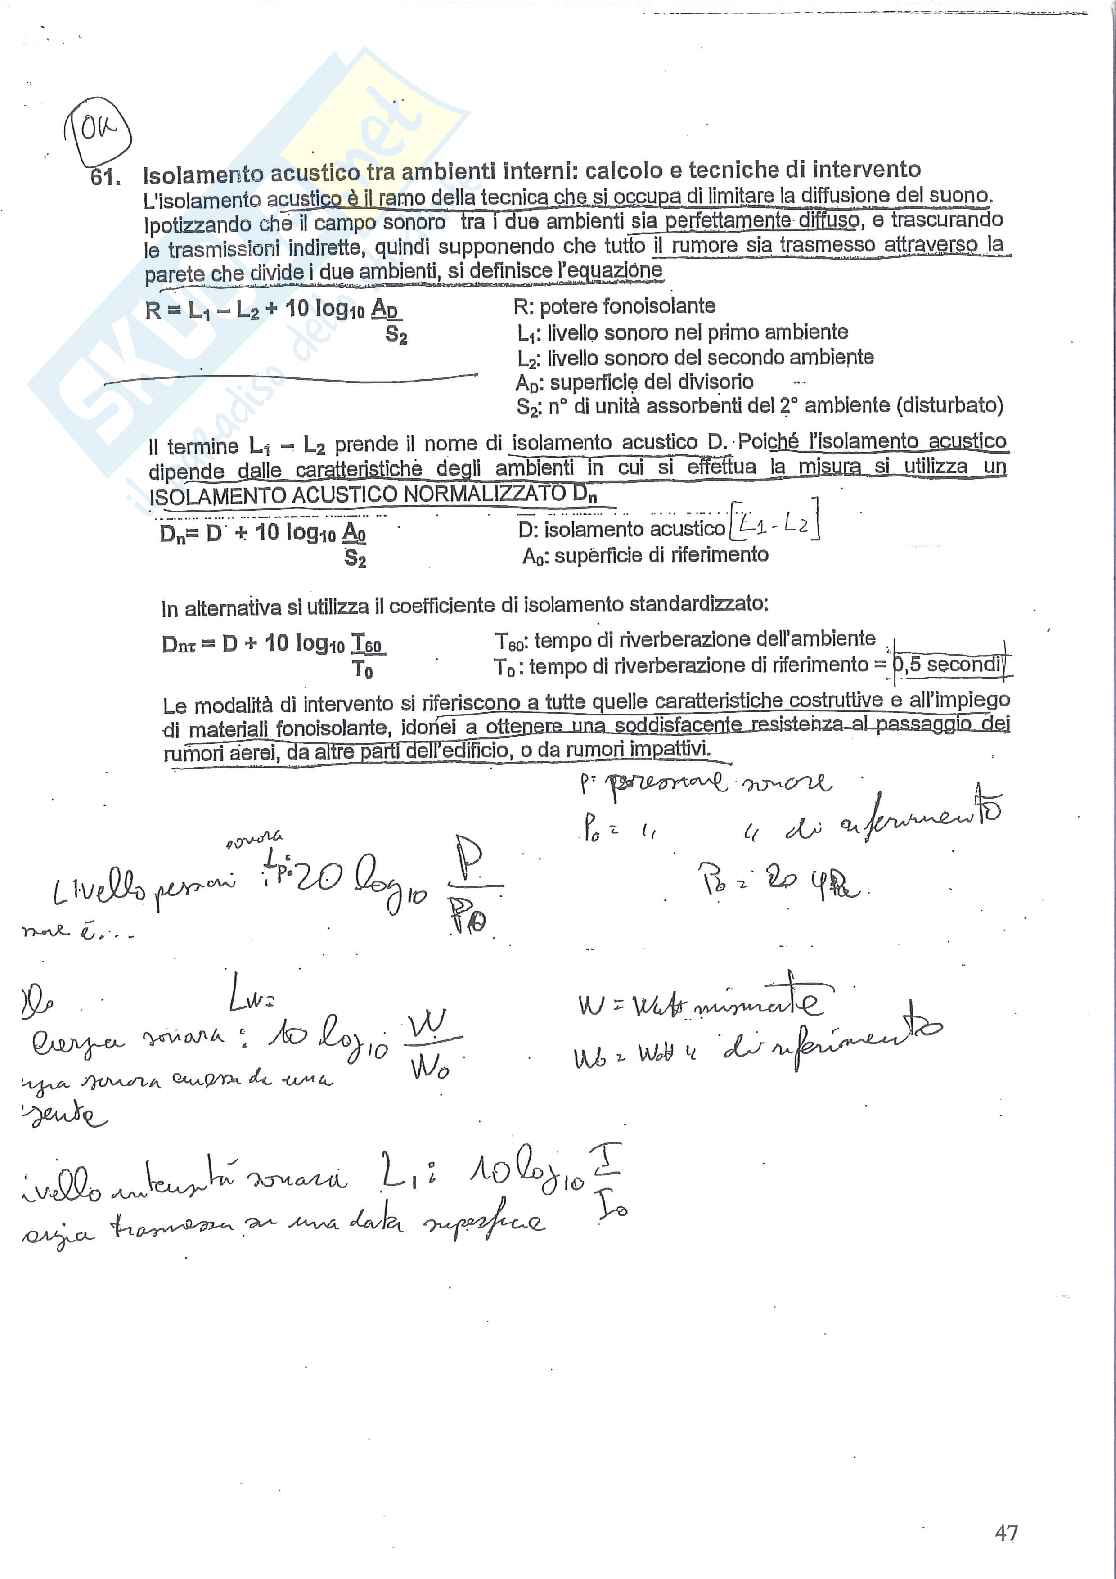 OK
61. Isolamento acustico tra ambienti interni: calcolo e tecniche di intervento
L'isolamento acustico è il ramo della tecnica che si occupa di limitare la diffusione del suono.
Ipotizzando che il campo sonoro tra i due ambienti sia perfettamente diffuso, e trascurando
le trasmissioni indirette, quindi supponendo che tutto il rumore sia trasmesso attraverso la
parete che divide i due ambienti, si definisce l'equazione
R = L1 – L2 + 10 log10 AD
S2
R: potere fonoisolante
L1: livello sonoro nel primo ambiente
L2: livello sonoro del secondo ambiente
AD: superficie del divisorio
S2: n° di unità assorbenti del 2° ambiente (disturbato)
Il termine L1 – L2 prende il nome di isolamento acustico D. Poiché l'isolamento acustico
dipende dalle caratteristiche degli ambienti in cui si effettua la misura si utilizza un
ISOLAMENTO ACUSTICO NORMALIZZATO Dn
Dn= D + 10 log10 A0
S2
D: isolamento acustico [L1 - L2]
A0: superficie di riferimento
In alternativa si utilizza il coefficiente di isolamento standardizzato:
DnT = D + 10 log10 T60
T0
T60: tempo di riverberazione dell'ambiente
T0: tempo di riverberazione di riferimento = 0,5 secondi
Le modalità di intervento si riferiscono a tutte quelle caratteristiche costruttive e all'impiego
di materiali fonoisolante, idonei a ottenere una soddisfacente resistenza al passaggio dei
rumori aerei, da altre parti dell'edificio, o da rumori impattivi.
P= pressione sonore
P0 = " " di riferimento
sonora
Livello pressori Lp: 20 log10 P
P0
P0 = 20 µPa.
male è...
Lw=
sonora: 10 log10 W
W0
W = Watt misurate
W0 = Watt " di riferimento
sonora emessa da una
gente
ivello intensità sonora L1: 10 log10 I
I0
ergia trasmessa su una data superficie
47
SKUOLA.net
il paradiso dello